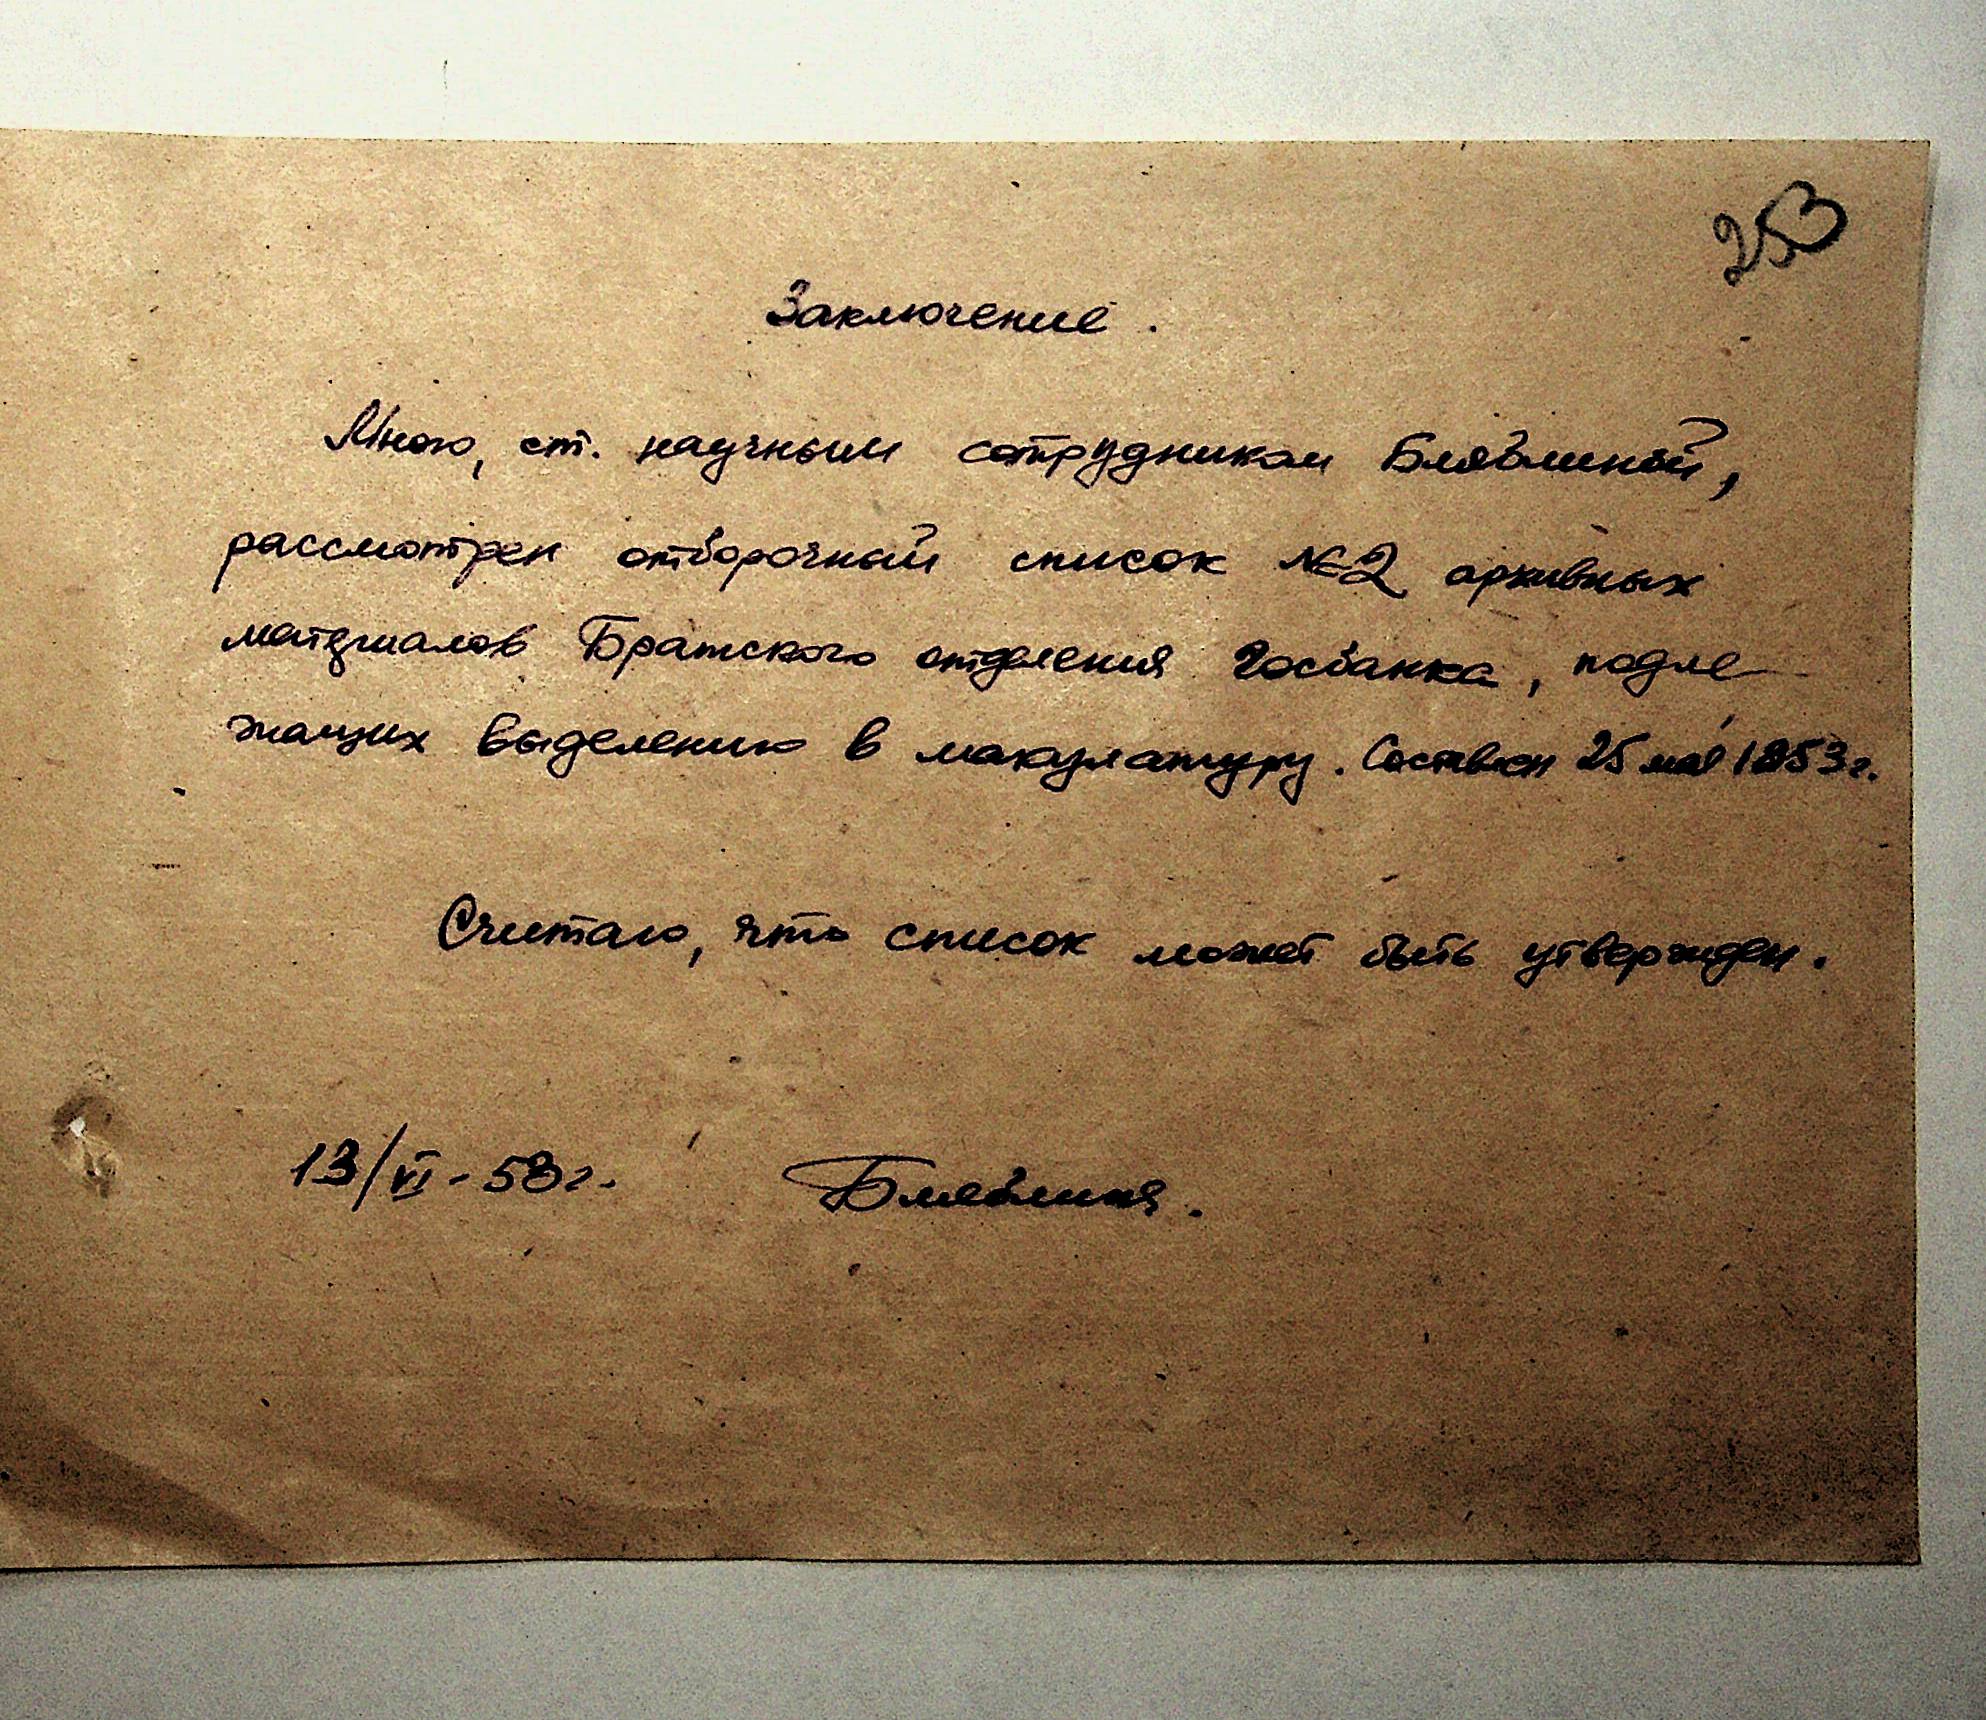 253
Заключение.
Мною, ст. научным сотрудником Блявлиной,
рассмотрен отборочный список №2 архивных
материалов Братского отделения Госбанка, подле
жащих выделению в макулатуру. Составлен 25 мая 1953 г.
Считаю, что список может быть утвержден.
13/VI - 53 г.